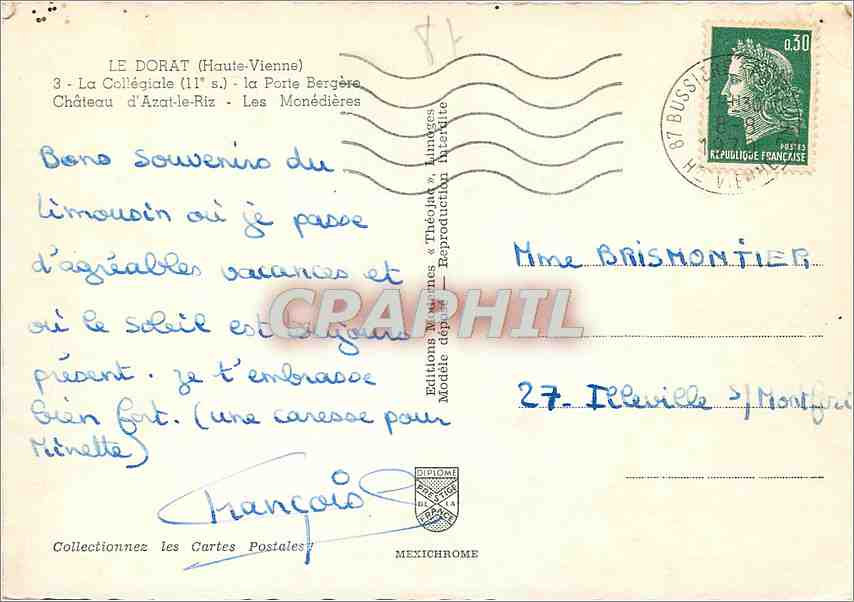 LE DORAT (Haute-Vienne)
3 - La Collégiale (11e s.) - la Porte Bergère
Château d'Azat-le-Riz - Les Monédières
Bons souvenirs du
limousin où je passe
d'agréables vacances et
où le soleil est toujours
présent. Je t'embrasse
bien fort. (une caresse pour
Minette)
François
Collectionnez les Cartes Postales
Editions Modernes « Théojac », Limoges
Modèle déposé — Reproduction Interdite
DIPLOME
PRESTIGE
DE LA
FRANCE
MEXICHROME
CPARPHIL
0,30
POSTES
REPUBLIQUE FRANÇAISE
87 BUSSIERE
HTE VIENNE
Mme BRISMONTIER
27- Illeville s/Montfort